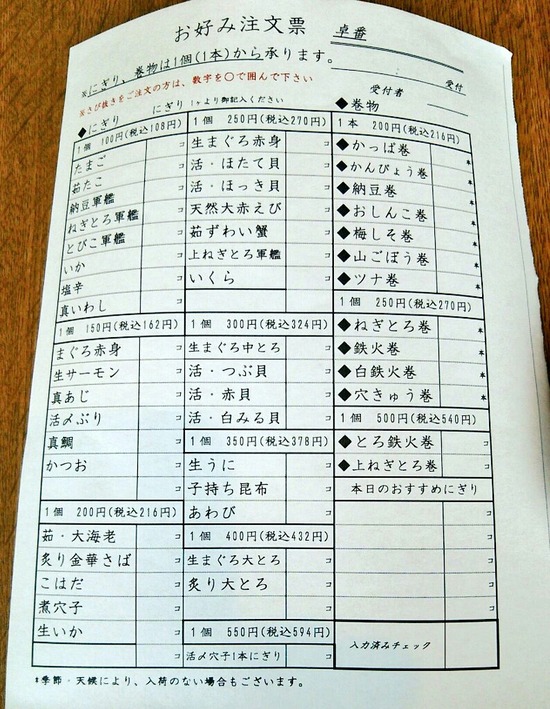 お好み注文票
卓番
※にぎり、巻物は1個(1本)から承ります。
※さび抜きをご注文の方は、数字を○で囲んで下さい
受付者
受付
◆にぎり
にぎり 1ヶより御記入ください
1個 100円(税込108円)
たまご コ
茹たこ コ
納豆軍艦 コ
ねぎとろ軍艦 コ
とびこ軍艦 コ
いか コ
塩辛 コ
真いわし コ
1個 150円(税込162円)
まぐろ赤身 コ
生サーモン コ
真あじ コ
活〆ぶり コ
真鯛 コ
かつお コ
コ
1個 200円(税込216円)
茹・大海老 コ
炙り金華さば コ
こはだ コ
煮穴子 コ
生いか コ
1個 250円(税込270円)
生まぐろ赤身 コ
活・ほたて貝 コ
活・ほっき貝 コ
天然大赤えび コ
茹ずわい蟹 コ
上ねぎとろ軍艦 コ
いくら コ
コ
1個 300円(税込324円)
生まぐろ中とろ コ
活・つぶ貝 コ
活・赤貝 コ
活・白みる貝 コ
1個 350円(税込378円)
生うに コ
子持ち昆布 コ
あわび コ
1個 400円(税込432円)
生まぐろ大とろ コ
炙り大とろ コ
コ
1個 550円(税込594円)
活〆穴子1本にぎり コ
◆巻物
1本 200円(税込216円)
◆かっぱ巻 本
◆かんぴょう巻 本
◆納豆巻 本
◆おしんこ巻 本
◆梅しそ巻 本
◆山ごぼう巻 本
◆ツナ巻 本
1個 250円(税込270円)
◆ねぎとろ巻 本
◆鉄火巻 本
◆白鉄火巻 本
◆穴きゅう巻 本
1個 500円(税込540円)
◆とろ鉄火巻 コ
◆上ねぎとろ巻 コ
本日のおすすめにぎり
コ
コ
コ
コ
コ
入力済みチェック
‡季節・天候により、入荷のない場合もございます。